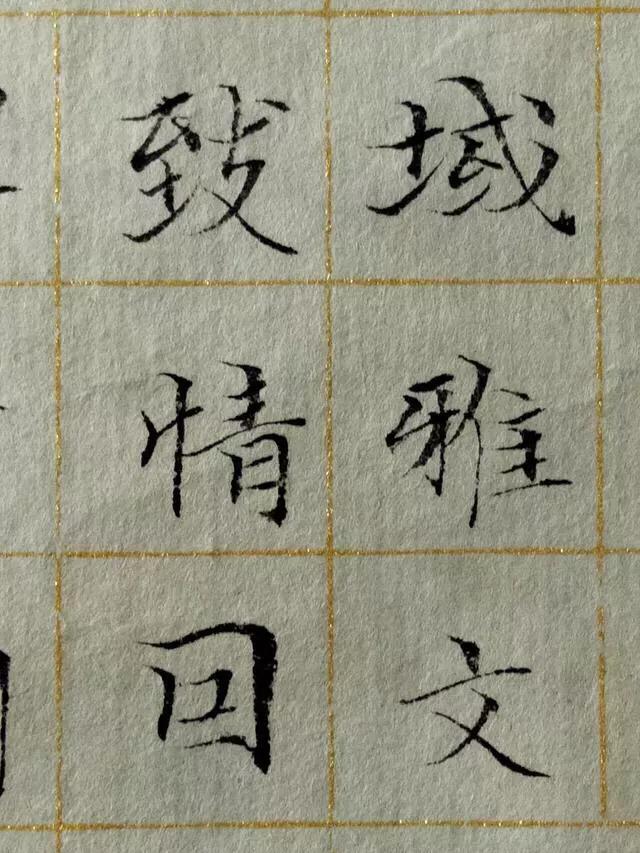 域雅文
致情回